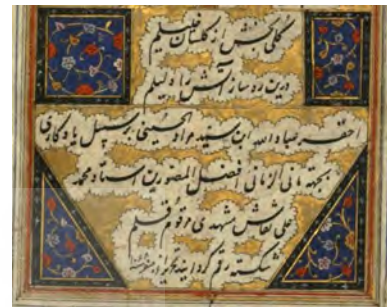 گلی بخش از گلستان خلیلم
درین ره ساز آتش را دلیلم
احقر عباد الله ابن سید مراد الحسینی بر سبیل یادگاری
بجهة مانی الزمانی افضل المصورین استاد محمد
علی نقاش مشهدی مرقوم قلم
شکسته رقم گردانید